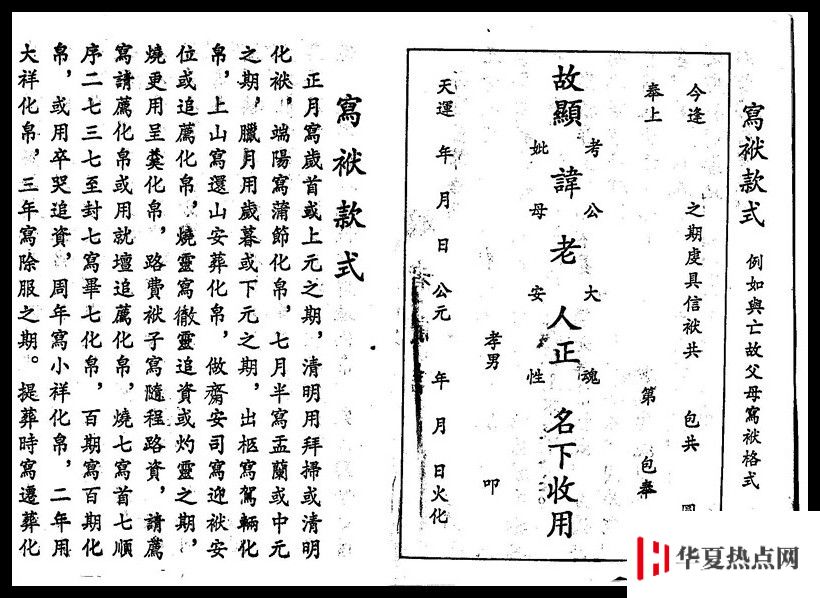 寫袱款式 例如與亡故父母寫袱格式
今逢 之期虔具信袱共 包共
奉上 第 包奉
考 公 大 魂
故顯 諱 老 人正 名下收用
妣 母 安 性
孝男 叩
天運 年 月 日 公元 年 月 日火化
寫袱款式
正月寫歲首或上元之期,清明用拜掃或清明
化袱,端陽寫蒲節化帛,七月半寫盂蘭或中元
之期,臘月用歲暮或下元之期,出柩寫駕輛化
帛,上山寫還山安葬化帛,做齋安司寫迎袱安
位或追薦化帛,燒靈寫徹靈追資或灼靈之期,
燒更用呈羹化帛,路費袱子寫隨程路資,請薦
寫請薦化帛或用就壇追薦化帛,燒七寫首七順
序二七三七至封七寫畢七化帛,百期寫百期化
帛,或用卒哭追資,周年寫小祥化帛,二年用
大祥化帛,三年寫除服之期。提葬時寫遷葬化
华夏热点网